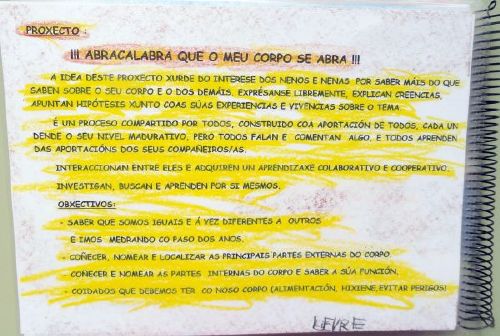 PROXECTO :
!!! ABRACALABRA QUE O MEU CORPO SE ABRA !!!
A IDEA DESTE PROXECTO XURDE DO INTERESE DOS NENOS E NENAS POR SABER MÁIS DO QUE
SABEN SOBRE O SEU CORPO E O DOS DEMÁIS. EXPRÉSANSE LIBREMENTE, EXPLICAN CREENCIAS,
APUNTAN HIPÓTESIS XUNTO COAS SÚAS EXPERIENCIAS E VIVENCIAS SOBRE O TEMA
É UN PROCESO COMPARTIDO POR TODOS, CONSTRUIDO COA APORTACIÓN DE TODOS, CADA UN
DENDE O SEU NIVEL MADURATIVO, PERO TODOS FALAN E COMENTAN ALGO, E TODOS APRENDEN
DAS APORTACIÓNS DOS SEUS COMPAÑEIROS/AS.
INTERACCIONAN ENTRE ELES E ADQUIREN UN APRENDIZAXE COLABORATIVO E COOPERATIVO.
INVESTIGAN, BUSCAN E APRENDEN POR SI MESMOS.
OBXECTIVOS:
- SABER QUE SOMOS IGUAIS E Á VEZ DIFERENTES A OUTROS
E IMOS MEDRANDO CO PASO DOS ANOS.
- COÑECER, NOMEAR E LOCALIZAR AS PRINCIPAIS PARTES EXTERNAS DO CORPO
- COÑECER E NOMEAR AS PARTES INTERNAS DO CORPO E SABER A SÚA FUNCIÓN.
- COIDADOS QUE DEBEMOS TER CO NOSO CORPO (ALIMENTACIÓN, HIXIENE, EVITAR PERIGOS)